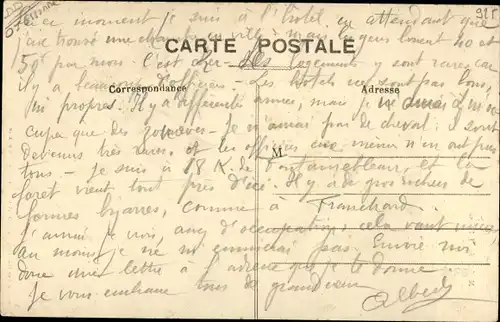 ce moment je suis à l'hôtel en attendant que
j'aie trouvé une chambre en ville mais les gens louent 40 et
CARTE POSTALE
50f par mois. C'est cher. Les logements y sont rares car
il y a beaucoup d'officiers. Les hôtels ne sont pas bons,
Correspondance
Adresse
ni propres. Il y a différentes armes, mais je
cupe que des zouaves. Je n'aurai pas de cheval : il sont
devenus très rares, et les officiers eux mêmes n'en ont pas
M
tous. Je suis à 18 K. de Fontainebleau, et la
forêt vient tout près d'ici. Il y a de gros rochers de
formes bizarres, comme à Franchard.
J'aurai je crois assez d'occupation, cela vaut mieux
au moins je ne m'ennuierai pas. Envoie moi
donc une lettre à l'adresse que je te donne
Je vous embrasse tous de grand cœur
Albert